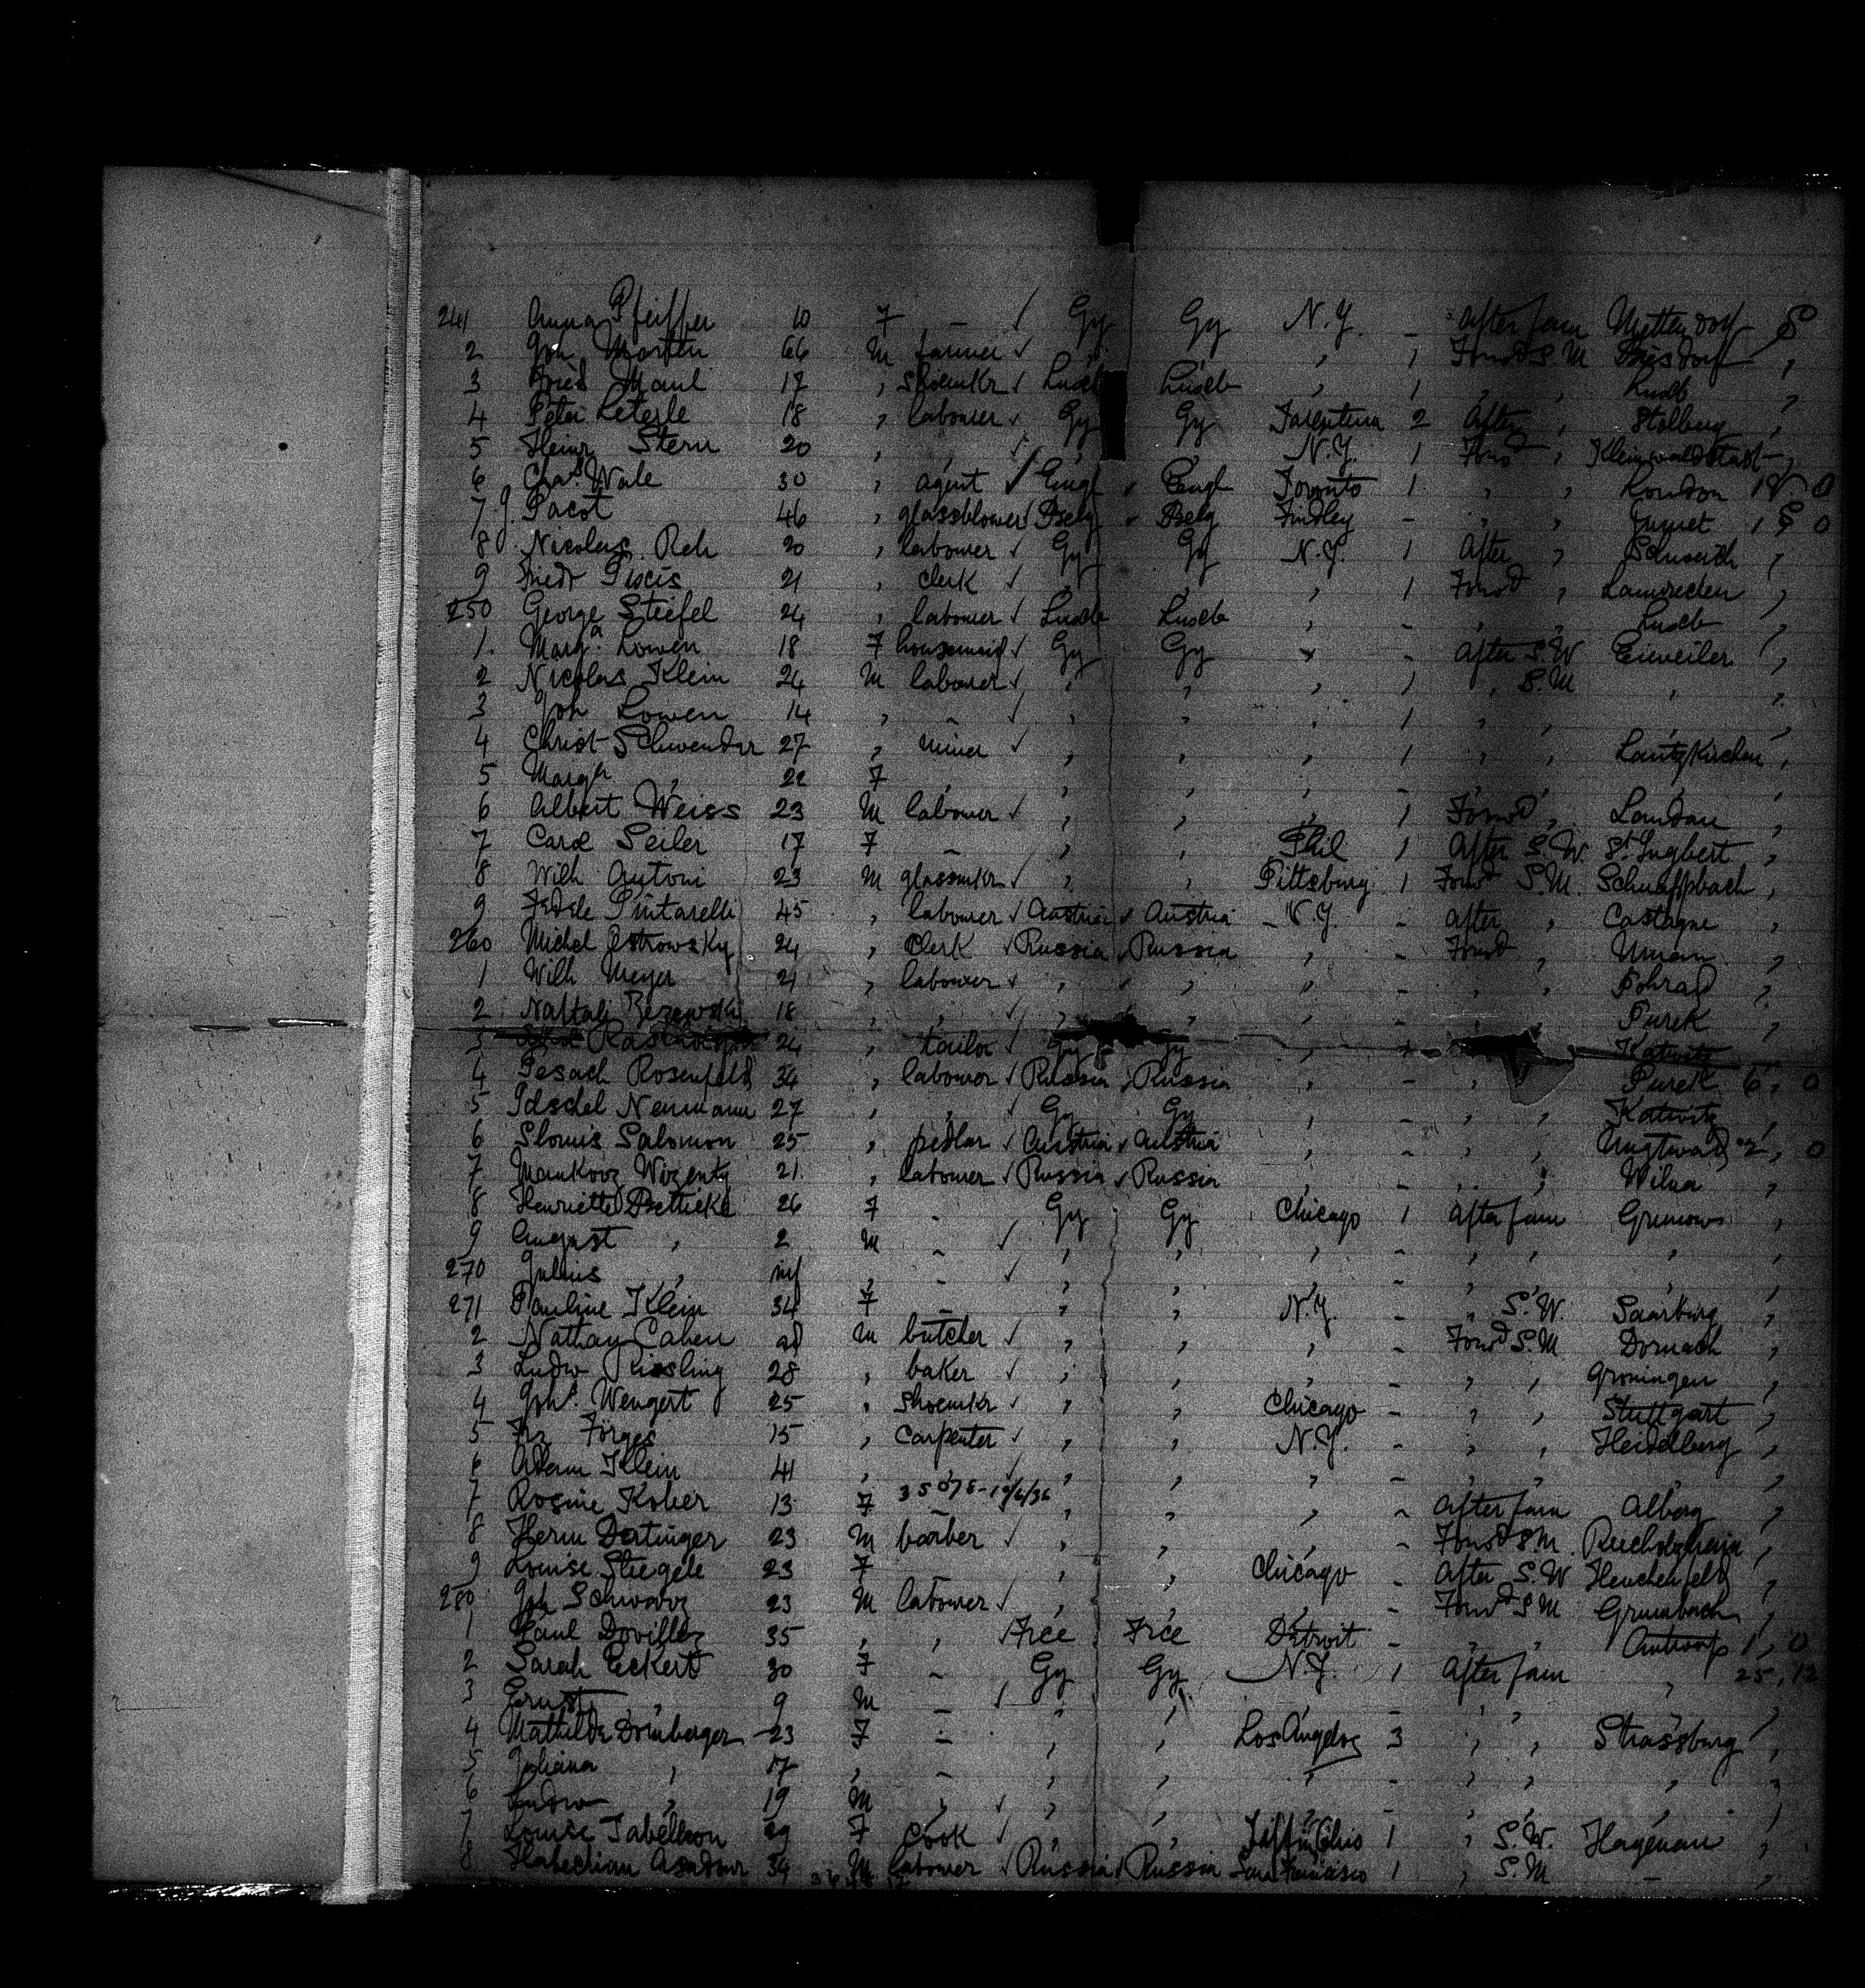 241 Anna Pfeiffer 10 F - ✓ Gy Gy N.Y. - After fam Mettendorf S
2 Joh Morten 66 M farmer ✓ , , , 1 Forwd S.M ,
3 Fried Maul 17 , Shoemkr ✓ Luxeb Luxeb , 1 , , Luxb ,
4 Peter Leterle 18 , labourer ✓ Gy Gy 2 After , Stolberg ,
5 Heinr Stern 20 , , ✓ , , N.Y. 1 Forwd , Kleinwaldstadt ,
6 Chas. Wale 30 , agent ✓ Engl , Engl Toronto 1 , , London 1 0
7 J. Pacot 46 , glassblower ✓ Belg , Belg Findley - , , Jumet 1 S 0
8 Nicolaus Reh 20 , labourer ✓ Gy Gy N.Y. 1 After , Schweich ,
9 Friedr 21 , clerk ✓ , , , 1 Forwd ,
250 George Stiefel 24 , labourer ✓ Luxeb Luxeb , - , , Luxeb
1 Marga Lowen 18 F housemaid ✓ Gy Gy , - After S.W Eieweiler ,
2 Nicolas Klein 24 M labourer ✓ , , , 1 , S.M , ,
3 Joh Lowen 14 , - ✓ , , , 1 , , , ,
4 Christ Schwender 27 , miner ✓ , , , 1 , , Lautzkirchen ,
5 Margh , 22 F - , , , - , , , ,
6 Albert Weiss 23 M labourer ✓ , , , 1 Forwd , Landau ,
7 Carol Seiler 17 F - , , Phil 1 After S.W. St Ingbert ,
8 Wilh Antoni 23 M glassmkr ✓ , , Pittsburg 1 Forwd S.M. Schnappbach ,
9 Fedele Pintarelli 45 , labourer ✓ Austria , Austria N.Y. - After , Castagne ,
260 Michel Ostrowsky 24 , Clerk ✓ Russia , Russia , - Forwd , Uman ,
1 Wilh Meyer 21 , labourer ✓ , , , - , , ,
2 Naftali 18 , , ✓ , , , , Purek ,
3 24 , tailor ✓ Gy Gy , - , Katwitz
4 Pesach Rosenfeld 34 , labourer ✓ Russia , Russia , - , Purek 6 , 0
5 Neumann 27 , , ✓ Gy Gy , - , , Katwitz ,
6 Slomis Salomon 25 , pedlar ✓ Austria , Austria , - , , 2 , 0
7 21 , labourer ✓ Russia , Russia , - , , Wilna ,
8 Henriette 26 F - Gy Gy Chicago 1 After fam Grunow ,
9 August , 2 M - ✓ , , , - , , , ,
270 Julius , inf , - ✓ , , , - , , , ,
271 Pauline Klein 34 F - , , N.Y. - , S.W. Saarburg ,
2 Nathan Cahen M butcher ✓ , , , - Forwd S.M. Dornach ,
3 Ludw Riesling 28 , baker ✓ , , , - , , Groningen ,
4 Joh. Wengert 25 , Shoemkr ✓ , , Chicago - , , Stuttgart ,
5 Frz Förges 15 , Carpenter ✓ , , N.Y. - , , Heidelberg ,
6 Adam Klein 41 , , ✓ , , , - , , , ,
7 Rosine Kober 13 F , , , - After fam Alberg ,
8 Herm Dertinger 23 M barber ✓ , , , - Forwd S.M. Reicholzheim ,
9 Louise Stiegele 23 F , , Chicago - After S.W Huchenfeld ,
280 Joh Schwarz 23 M labourer ✓ , , , - Forwd S.M Grumbach ,
1 Paul 35 , , ✓ Frce Frce Detroit - , , Antwerp 1 , 0
2 Sarah Eckert 30 F - Gy Gy N.Y. 1 After fam , 25 , 12
3 Ernst , 9 M - ✓ , , , - , , , ,
4 Mathilde Dornberger 23 F - , , Los Angelos 3 , , Strassburg ,
5 Juliana , 17 , - , , , - , , , ,
6 Ludw , 19 M , ✓ , , , - , , , ,
7 Louise Tabellion 29 F Cook ✓ , , Tiffin Ohio 1 , S.W. Hagenau ,
8 34 M labourer ✓ Russia , Russia San Francisco 1 , S.M - ,